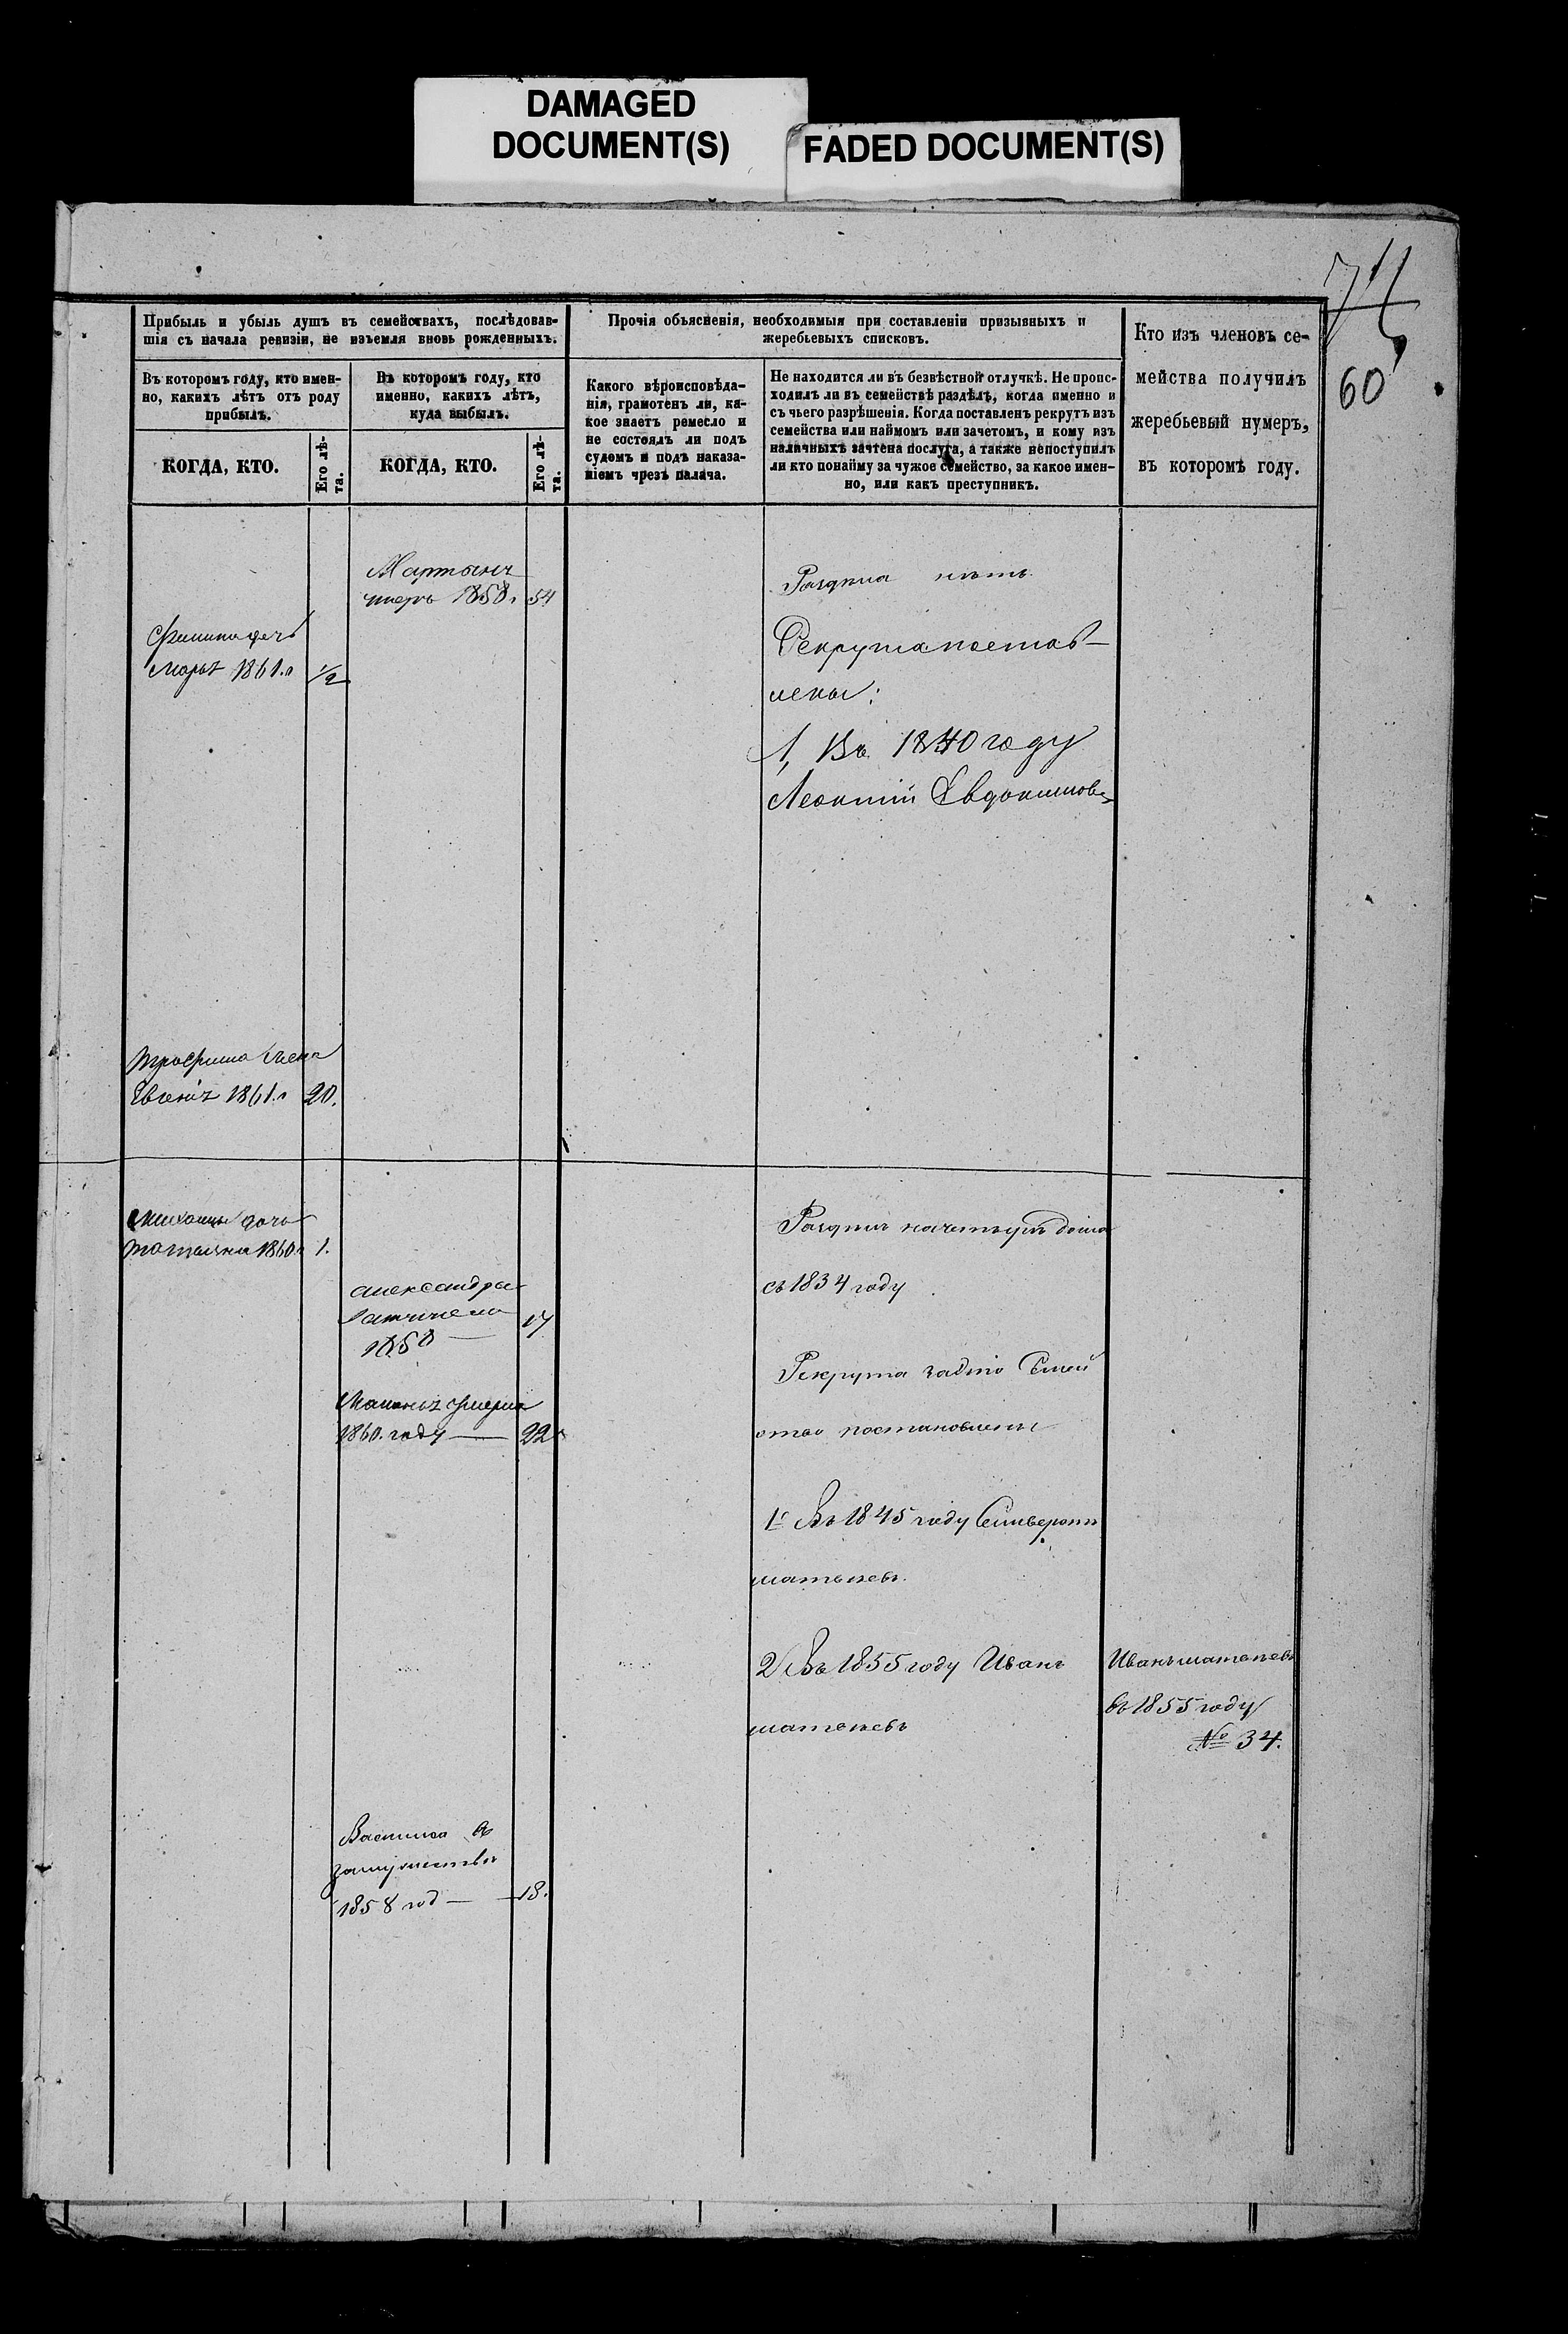 DAMAGED
DOCUMENT(S)
FADED DOCUMENT(S)
60
Прибыль и убыль душъ въ семействахъ, послѣдовав-
шія съ начала ревизіи, не изъемля вновь рожденныхъ.
Въ которомъ году, кто имен-
но, какихъ лѣтъ отъ роду
прибылъ.
КОГДА, КТО.
Его лѣ-
та.
Въ которомъ году, кто
именно, какихъ лѣтъ,
куда выбылъ.
КОГДА, КТО.
Его лѣ-
та.
Прочія объясненія, необходимыя при составленіи призывныхъ и
жеребьевыхъ списковъ.
Какого вѣроисповѣда-
нія, грамотенъ ли, ка-
кое знаетъ ремесло и
не состоялъ ли подъ
судомъ и подъ наказа-
ніемъ чрезъ палача.
Не находится ли въ безвѣстной отлучкѣ. Не проис-
ходилъ ли въ семействѣ раздѣлъ, когда именно и
съ чьего разрѣшенія. Когда поставленъ рекрутъ изъ
семейства или наймомъ или зачетомъ, и кому изъ
наличныхъ зачтена послуга, а также непоступилъ
ли кто понайму за чужое семейство, за какое имен-
но, или какъ преступникъ.
Кто изъ членовъ се-
мейства получилъ
жеребьевый нумеръ,
въ которомъ году.
Мартынъ
умеръ 1858 г 54
Раздѣла нѣтъ
Филипа дочь
Марья 1861 г 1/2
Рекрута постав-
лены:
1, Въ 1840 году
Леонтій Евдокимовъ
Трофима жена
Евгенія 1861 г 20.
Михаилы дочь
Татьяна 1860 г 1.
Раздѣлъ на четыре дома
съ 1834 году
Александра
1858 — 17
Рекрута
Маланья умерла
1860. году — 22
постановлены
1й Въ 1845 году Селиверстъ
матвѣевъ.
2/ Въ 1855 году Иванъ
матвѣевъ
Иванъ матвѣевъ
въ 1855 году
№ 34.
Василиса въ
замужество
1858 год — 18.